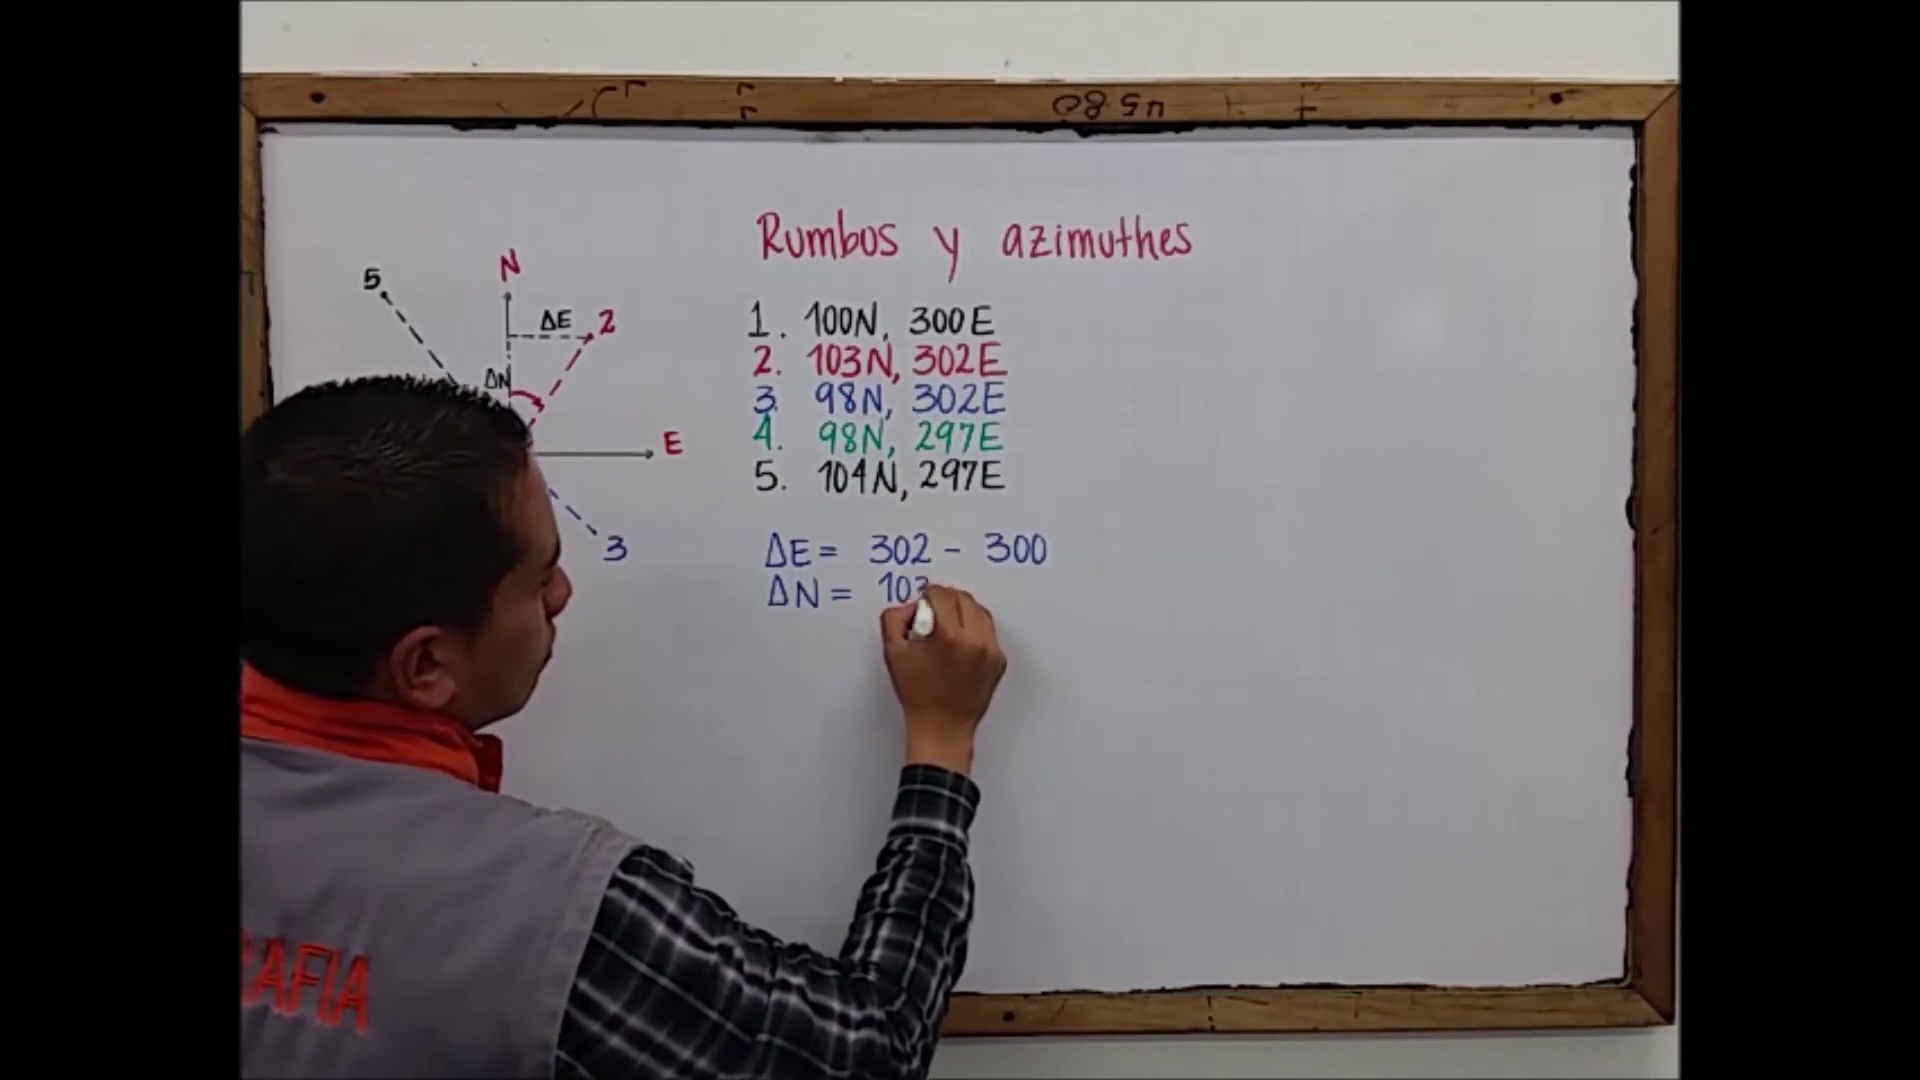 Rumbos y azimuthes
5
N
ΔE 2
ΔN
E
3
1. 100N, 300E
2. 103N, 302E
3. 98N, 302E
4. 98N, 297E
5. 104N, 297E
ΔE = 302 - 300
ΔN = 103